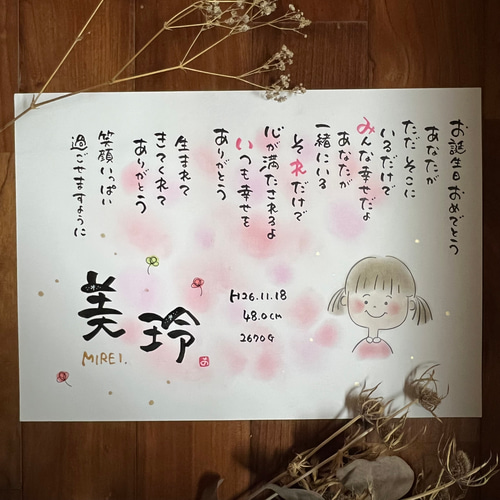 お誕生日おめでとう
あなたが
ただそこに
いるだけで
みんな幸せだよ
あなたが
一緒にいる
それだけで
心が満たされるよ
いつも幸せを
ありがとう
生まれて
きてくれて
ありがとう
笑顔いっぱい
過ごせますように
H26.11.18
48.0cm
2670G
美玲
MIREI.